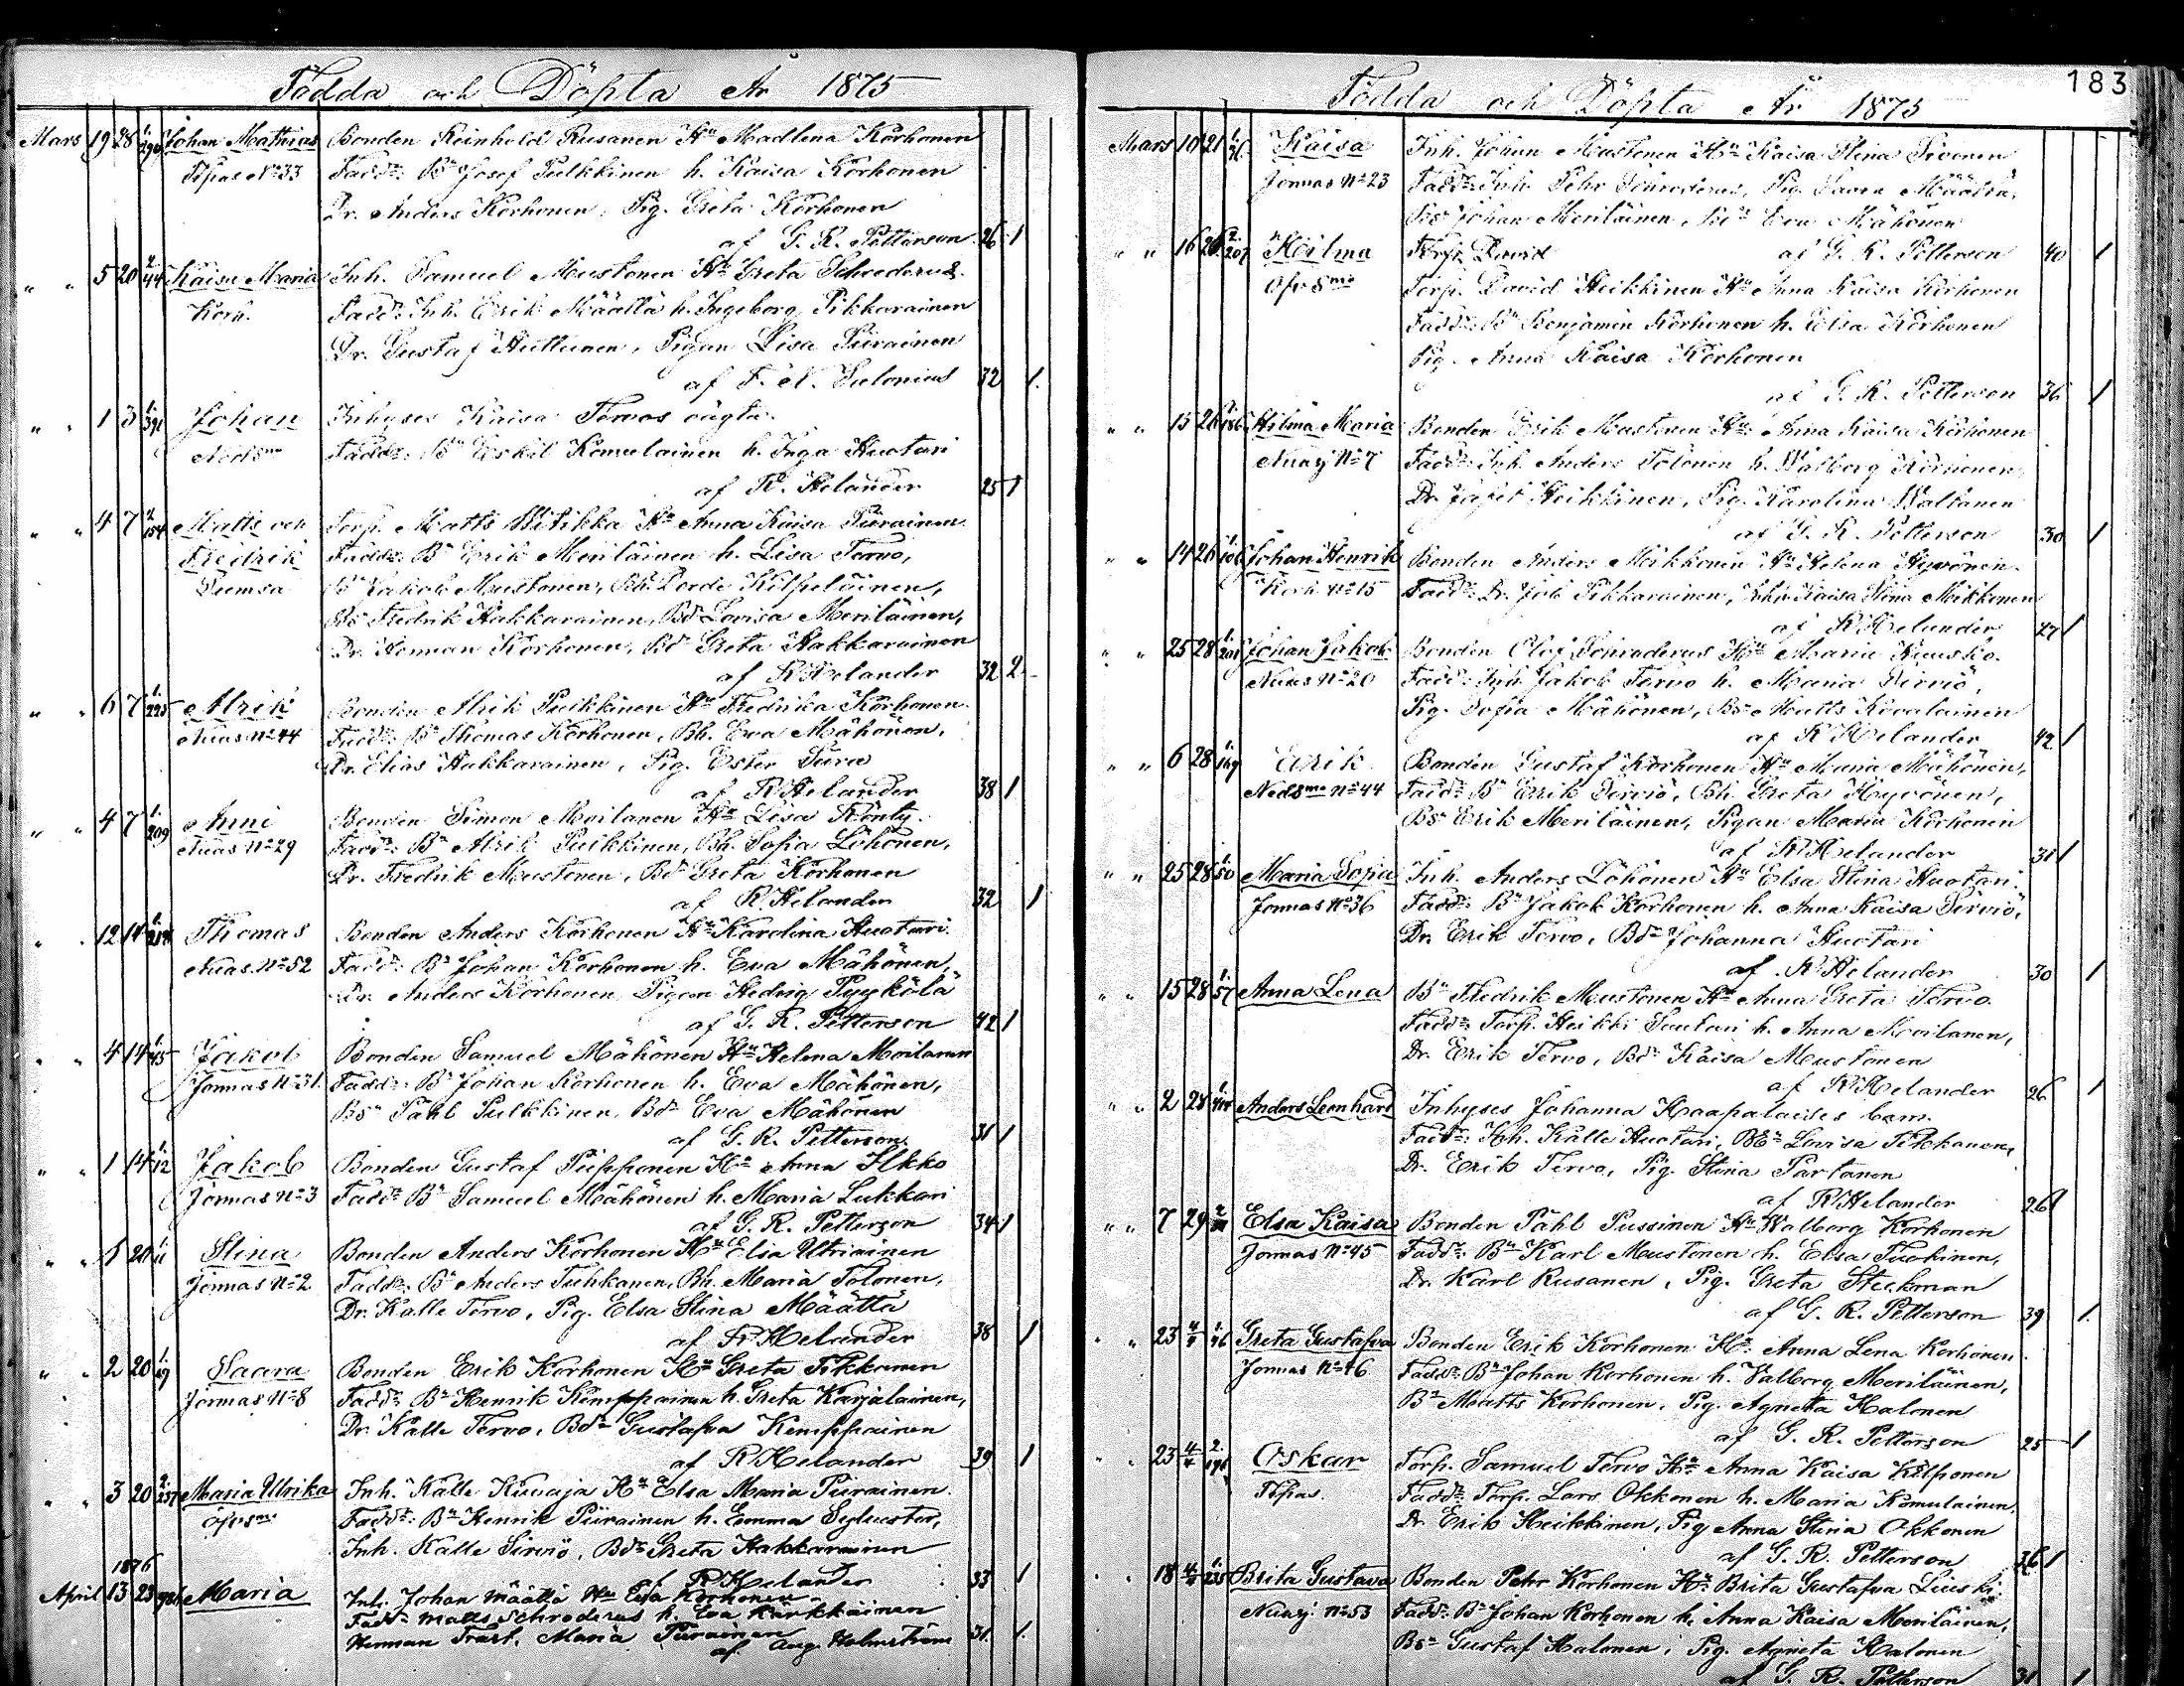 Födda och Döpta År 1875
Mars 19 28 Johan Mathias Bonden Reinhold Rusanen Hu Madlena Korhonen
Tipas No 33 Faddr: Bn Josef Pulkkinen h. Kaisa Korhonen
Dr. Anders Korhonen, Pig. Greta Korhonen
af G. R. Petterson 26 1
" " 5 20 2/44 Kaisa Maria Inh. Samuel Mustonen Hu Greta Schroderus
Korh. Faddr: Inh. Erik Määttä h. Ingeborg Pikkarainen
Dr. Gustaf Huttunen, Pigan Lisa Piirainen
af F. N. 32 1.
" " 1 3 1/391 Johan Inhyses Kaisa Tervos oägta.
Nedsmo Faddr: Bn Eskil Komulainen h. Inga Huotari
af R. Helander 25 1
" " 4 7 2/154 Matts och Torp. Matts Witikka Hu Anna Kaisa Piirainen
Fredrik Faddr: Bn Erik Meriläinen h. Lisa Tervo,
Sumsa Bn Jakob Mustonen, Kilpeläinen,
Bs Fredrik Hakkarainen, Bdr Lovisa Meriläinen,
Dr. Herman Korhonen, Bdr Greta Hakkarainen
af R Helander 32 2
" " 6 7 1/225 Alrik Bonden Alrik Pulkkinen Hu Fredrika Korhonen
Nuas No 44 Faddr: Bn Thomas Korhonen, Bh. Eva Mähönen,
Dr. Elias Hakkarainen, Pig. Ester
af R Helander 38 1
" " 4 7 1/209 Anni Bonden Simon Moilanen Hu Lisa Rönty
Nuas No 29 Faddr: Bn Alrik Pulkkinen, Bh. Sofia Löhönen,
Dr. Fredrik Mustonen, Bdr Greta Korhonen
af R Helander 32 1
" 12 14 Thomas Bonden Anders Korhonen Hu Karolina Huotari
Nuas No 52 Faddr: Bn Johan Korhonen h. Eva Mähönen,
Dr. Anders Korhonen, Pigan Hedvig Pyykölä
af G. R. Petterson 42 1
" " 4 14 1/45 Jakob Bonden Samuel Mähönen Hu Helena Moilanen
Jormas No 31 Faddr: Bn Johan Korhonen h. Eva Mähönen,
Bsn Påhl Pulkkinen, Bdr Eva Mähönen
af G. R. Petterson 31 1
" " 1 14 1/12 Jakob Bonden Gustaf Piipponen Hu Anna Ilkko
Jormas No 3 Faddr Bn Samuel Mähönen h. Maria Lukkari
af G. R. Petterson 34 1
" 5 20 1/11 Stina Bonden Anders Korhonen Hu Elsa Utriainen
Jormas No 2 Faddr: Bn Anders Tuhkanen, Bh. Maria Tolonen,
Dr. Kalle Tervo, Pig. Elsa Stina Määttä
af R Helander 38 1
" " 2 20 1/19 Saara Bonden Erik Korhonen Hu Greta Tikkanen
Jormas No 8 Faddr: Bn Henrik Kemppainen h. Greta Karjalainen,
Dr. Kalle Tervo, Bdr Gustafva Kemppainen
af R Helander 39 1
" " 3 20 2/237 Maria Ulrika Inh. Kalle Kuvaja Hu Elsa Maria Piirainen
Öfvsmo Faddr: Bn Henrik Piirainen h. Emma Sylvester,
Inh. Kalle Sirviö, Bdr Greta Hakkarainen
af R Helander 33 1
1876
April 13 23 Maria Inh. Johan Määttä Hu Elsa Korhonen
Faddr Matts Schroderus h. Eva Kärkkäinen
Herman Trast, Maria Piirainen
af Aug. Holmström 31. 1.
183
Födda och Döpta År 1875
Mars 10 21 Kaisa Inh. Johan Mustonen Hu Kaisa Stina Sivonen
Jormas No 23 Faddr: Inh. Pehr Schroderus, Pig. Saara Määttä,
Bsn Johan Meriläinen, Bdr Eva Mähönen
" " 16 26 2/207 Hilma Torp. David af G. R. Petterson 40 1
Öfvsmo Torp. David Heikkinen Hu Anna Kaisa Korhonen
Faddr: Bn Benjamin Korhonen h. Elsa Korhonen
Pig. Anna Kaisa Korhonen
af G. R. Petterson 36 1
" " 15 26 1/186 Hilma Maria Bonden Erik Mustonen Hu Anna Kaisa Korhonen
Nuasj No 7 Faddr: Inh. Anders Tolonen h. Walborg Korhonen,
Dr. Jafet Heikkinen, Pig. Karolina Waltanen
af G. R. Petterson 30 1
" " 14 26 Johan Henrik Bonden Anders Mikkonen Hu Helena Hyvönen
Korh. No 15 Faddr: Dr. Job Pikkarainen, Kaisa Stina Mikkonen
af R Helander 27 1
" " 25 28 1/201 Johan Jakob Bonden Olof Schroderus Hu Maria Ruusko.
Nuas No 20 Faddr: Inh. Jakob Tervo h. Maria Sirviö,
Pig. Sofia Mähönen, Bsn Matts Kovalainen
af R Helander 42 1
" " 6 28 1/169 Erik Bonden Gustaf Korhonen Hu Maria Mähönen,
Nedsmo No 44 Faddr: Bn Erik Sirviö, Bh. Greta Hyvönen,
Bsn Erik Meriläinen, Pigan Maria Korhonen
af R Helander 31 1
" " 25 28 1/50 Maria Sofia Inh. Anders Löhönen Hu Elsa Stina Huotari
Jormas No 36 Faddr: Bn Jakob Korhonen h. Anna Kaisa Sirviö,
Dr. Erik Tervo, Bdr Johanna Huotari
af R Helander 30 1
" " 15 28 1/57 Anna Lena Bn Fredrik Mustonen Hu Anna Greta Tervo
Faddr: Torp. Heikki Sautari h. Anna Moilanen,
Dr. Erik Tervo, Bdr Kaisa Mustonen
af R Helander 26 1
" " 2 28 Anders Leonhard Inhyses Johanna Haapalaises barn
Faddr: Inh. Kalle Huotari, Lovisa Tikkanen,
Dr. Erik Tervo, Pig. Stina Partanen
af R Helander 26 1
" " 7 29 Elsa Kaisa Bonden Påhl Pussinen Hu Walborg Korhonen
Jormas No 45 Faddr: Bn Karl Mustonen h. Elsa Tuokinen,
Dr. Karl Rusanen, Pig. Greta Steckman
af G. R. Petterson 39 1.
" " 23 4/4 Greta Gustafva Bonden Erik Korhonen Hu Anna Lena Korhonen
Jormas No 46 Faddr: Bn Johan Korhonen h. Valborg Meriläinen,
Bn Matts Korhonen, Pig. Agneta Halonen
af G. R. Petterson 25 1
" " 23 4/4 Oskar Torp. Samuel Tervo Hu Anna Kaisa Kilponen
Tipas. Faddr: Torp. Lars Okkonen h. Maria Komulainen,
Dr Erik Heikkinen, Pig Anna Stina Okkonen
af G. R. Petterson 36 1
" " 18 4/4 1/235 Brita Gustava Bonden Petr Korhonen Hu Brita Gustafva Liuski
Nuasj: No 53 Faddr: Bn Johan Korhonen h. Anna Kaisa Meriläinen,
Bsn Gustaf Halonen, Pig. Agneta Halonen
af G. R. Petterson 31 1